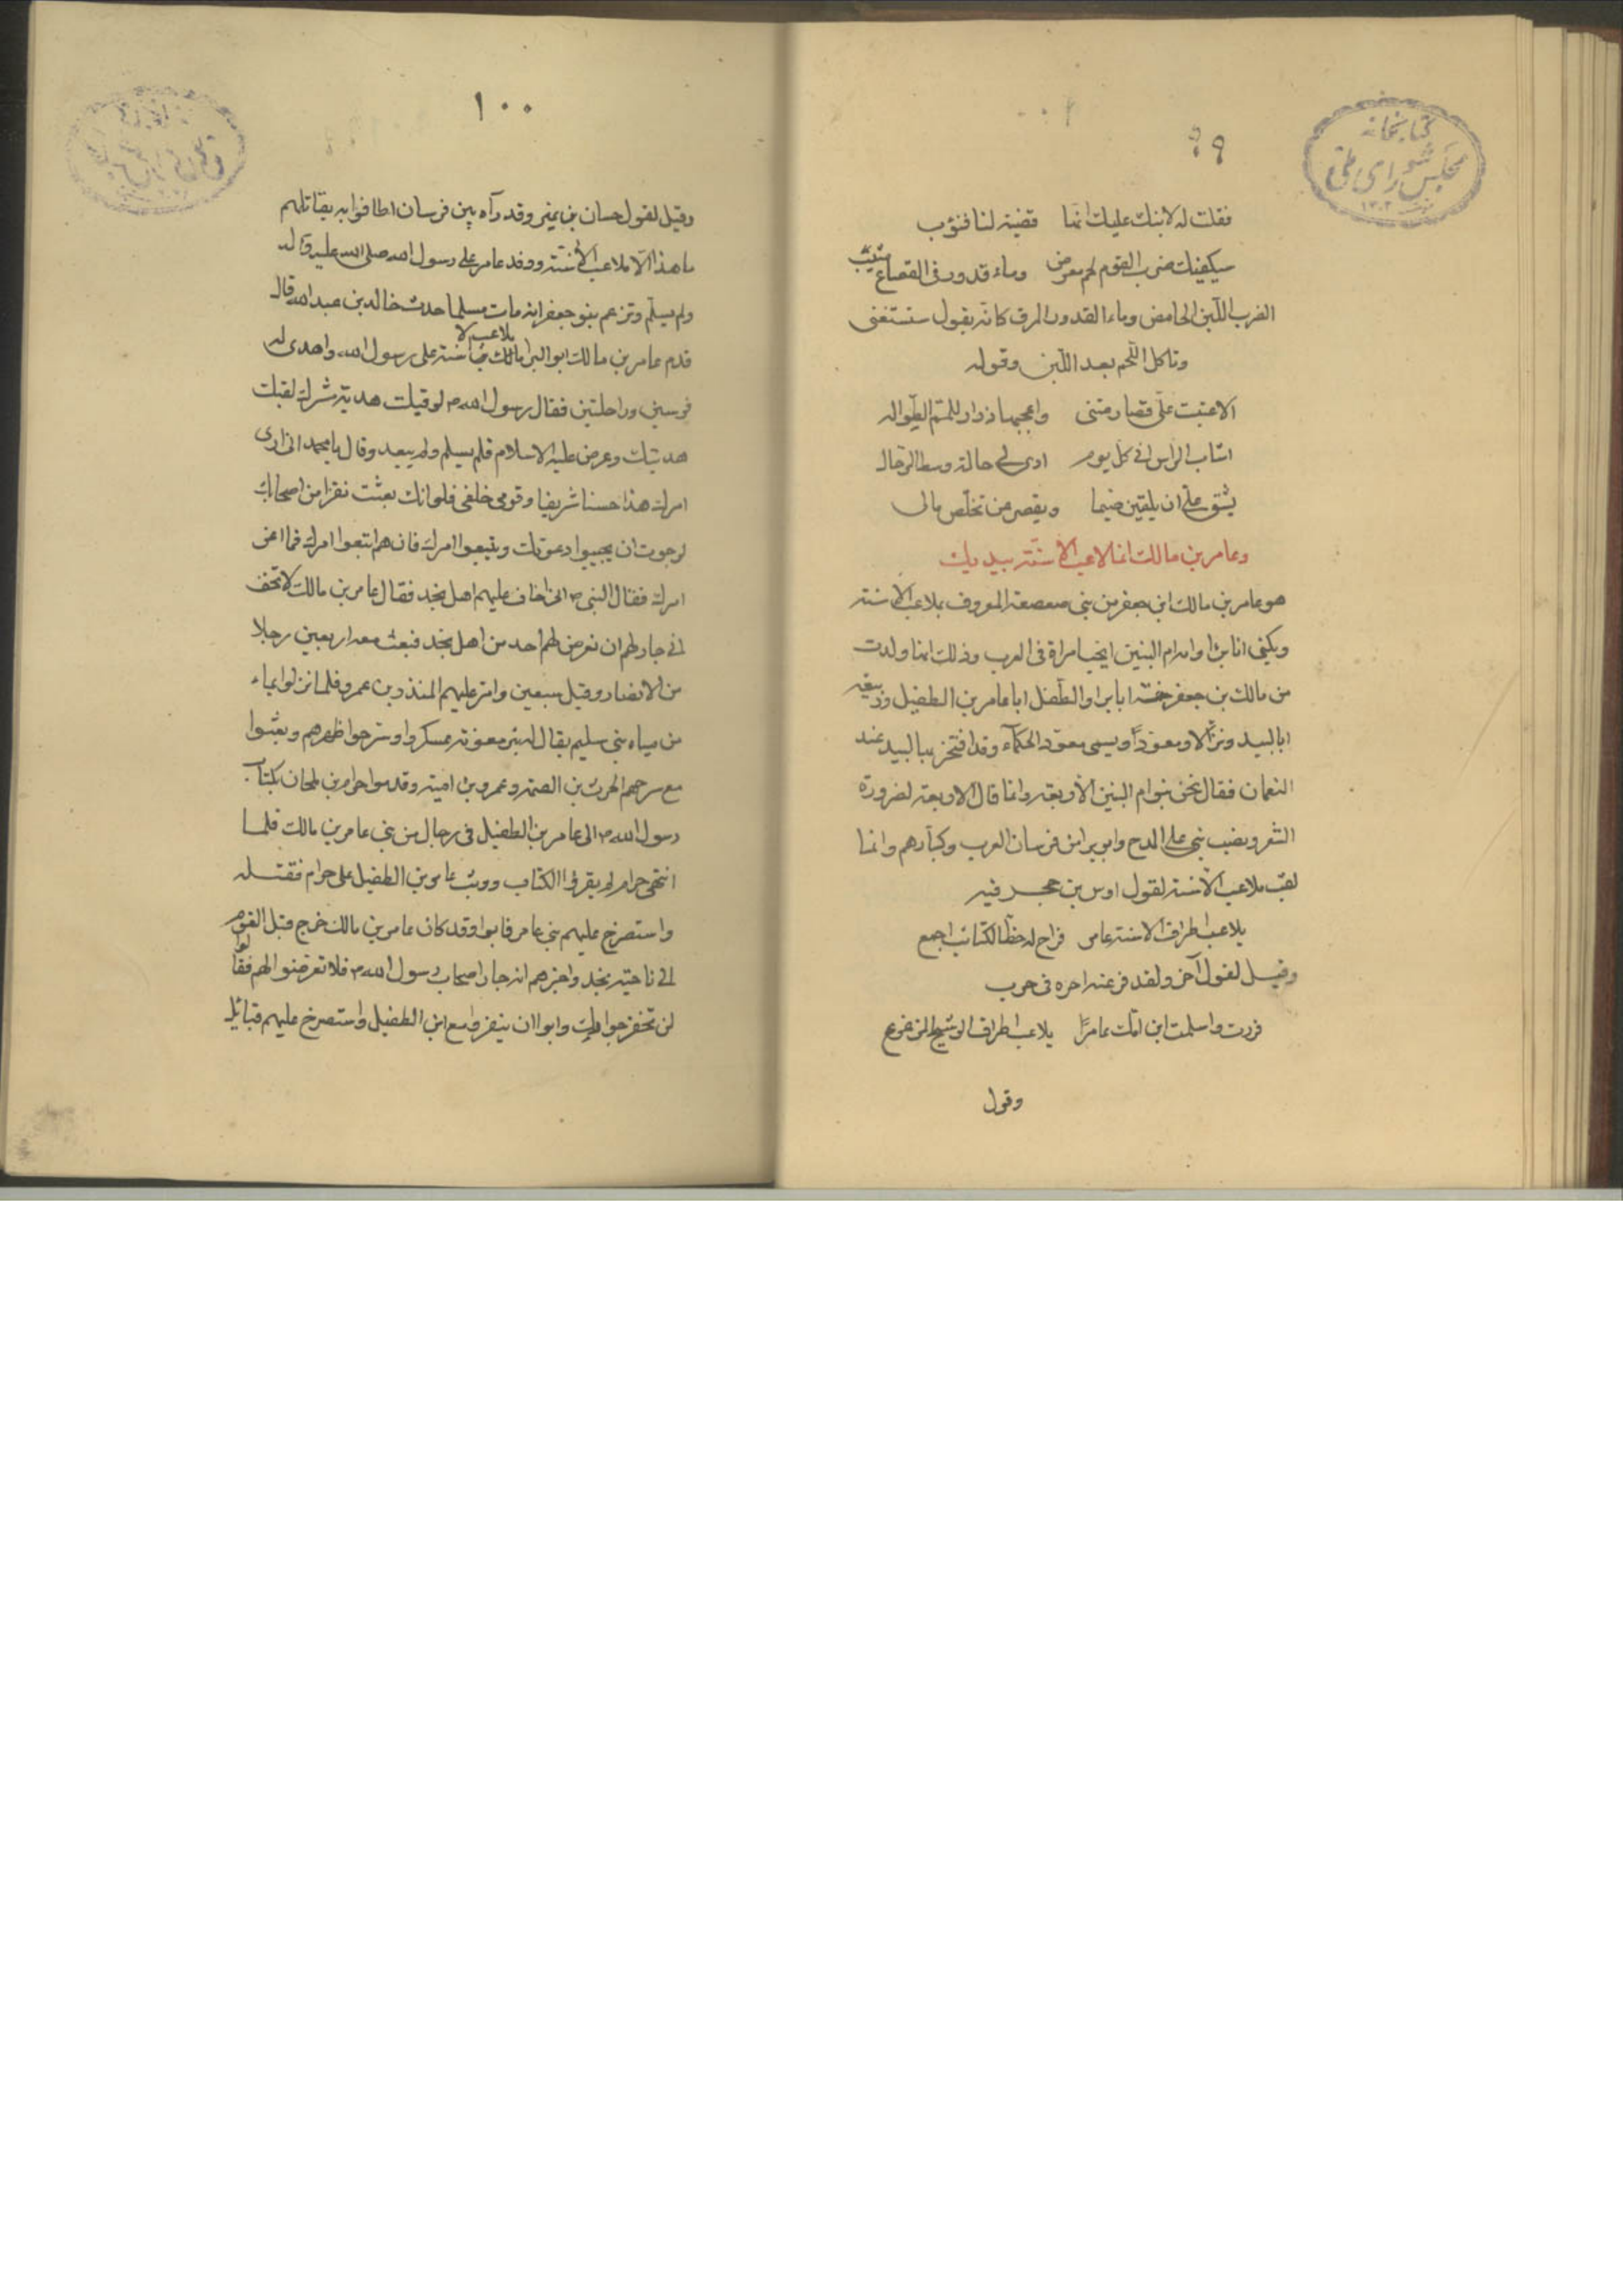 ٩٩
كتابخانه
مجلس شورای ملی
١٣٠٢
فقلت له لا نبك عليك انما قضية لنا فنؤب
سيكفيك ضرب القوم لحم معرض وماء قدور فى القصاع مشيب
الضرب اللبن الحامض وماء القدور المرق كانه يقول ستستغنى
وتاكل اللحم بعد اللبن وقوله
الا عتبت على فصارمتنى واعجبها ذوار للمم الطوال
اشاب الراس انى كل يوم ارى لى خالة وسط الرحال
يشق على ان يلقين ضيما ويقصر عن تخلص مالى
وعامر بن مالك انما لاعب الاسنة بيديك
هو عامر بن مالك ابن جعفر من بنى صعصعة المعروف بملاعب الاسنة
ويكنى ابا برا وامه ام البنين انجب امراة فى العرب وذلك انها ولدت
من مالك بن جعفر خمسة ابا برا والطفل ابا عامر بن الطفيل وربيعة
ابا لبيد ونزالا ومعوذا ويسمى معوذ الحكماء وقد افتخر بها لبيد عند
النعمان فقال نحن بنو ام البنين الاربعة وانما قال الاربعة لضرورة
الشعر ونصب بنى على المدح وابو برا من فرسان العرب وكبارهم وانما
لقب ملاعب الاسنة لقول اوس بن حجر فيه
يلاعب اطراف الاسنة عامر فراح له حظ الكتائب اجمع
وقيل لقول آخر ولقد فر عنه اخره فى حرب
فررت واسلمت ابن امك عامرا يلاعب اطراف الوشيج المزعزع
وقول
١٠٠
وقيل لقول حسان بن نمير وقد رآه بين فرسان اطافوا به يقاتلهم
ما هذا الا ملاعب الاسنة ووفد عامر على رسول الله صلى الله عليه وآله
ولم يسلم وتزعم بنو جعفر انه مات مسلما حدث خالد بن عبد الله قال
قدم عامر بن مالك ابو البرا مالك ملاعب الاسنة على رسول الله واهدى له
فرسين وراحلتين فقال رسول الله ص لو قبلت هدية مشرك لقبلت
هديتك وعرض عليه الاسلام فلم يسلم ولم يبعد وقال يا محمد انى ارى
امرك هذا حسنا شريفا وقومى خلفى فلو انك بعثت نفرا من اصحابك
لرجوت ان يجيبوا دعوتك ويتبعوا امرك فان هم اتبعوا امرك فما اعز
امرك فقال النبى ص انى اخاف عليهم اهل نجد فقال عامر بن مالك لا تخف
انى جار لهم ان تعرض لهم احد من اهل نجد فبعث معه اربعين رجلا
من الانصار وقيل سبعين وامر عليهم المنذر بن عمرو فلما نزلوا بماء
من مياه بنى سليم يقال له بئر معونة عسكروا وسرحوا ظهرهم وبعثوا
مع سرحهم الحرث بن الصمة وعمرو بن امية وقدموا حرام بن لمحان بكتاب
رسول الله ص الى عامر بن الطفيل فى رجال من بنى عامر بن مالك فلما
انتهى حرام لم يقرؤا الكتاب ووثب عامر بن الطفيل على حرام فقتله
واستصرخ عليهم بنى عامر فابوا وقد كان عامر بن مالك خرج قبل القوم
الى ناحية نجد واخبرهم انه جار اصحاب رسول الله ص فلا تعرضوا لهم فقالوا
لن تخفر جوارك وابوا ان ينفروا مع ابن الطفيل واستصرخ عليهم قبائل